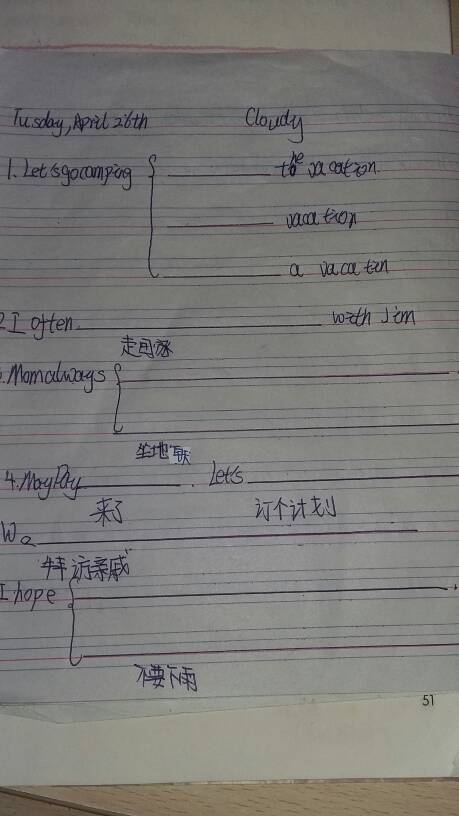 Tusday, April 26th Cloudy
1. Let's go camping the vacation.
vacation
a vacation
2 I often with Jim
走回家
Mom always
坐地铁
4. May Day . Let's
来了 订个计划
We
拜访亲戚
I hope
不要下雨
51